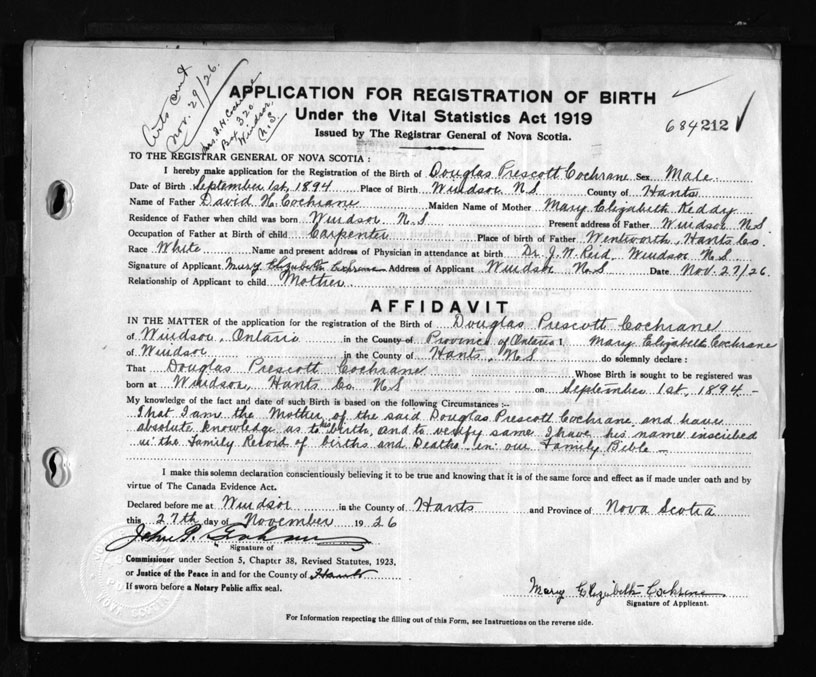 Nov. 29/26.
Mrs. D. H. Cochrane
Box 320
Windsor
N.S.
APPLICATION FOR REGISTRATION OF BIRTH
Under the Vital Statistics Act 1919
Issued by The Registrar General of Nova Scotia.
684212
TO THE REGISTRAR GENERAL OF NOVA SCOTIA:
I hereby make application for the Registration of the Birth of Douglas Prescott Cochrane Sex Male
Date of Birth September 1st, 1894 Place of Birth Windsor N.S County of Hants
Name of Father David H. Cochrane Maiden Name of Mother Mary Elizabeth Keddy
Residence of Father when child was born Windsor N.S Present address of Father Windsor N.S.
Occupation of Father at Birth of child Carpenter Place of birth of Father Wentworth, Hants Co.
Race White Name and present address of Physician in attendance at birth Dr. J. W. Reid, Windsor N.S
Signature of Applicant Mary Elizabeth Cochrane Address of Applicant Windsor N.S. Date Nov. 27/26.
Relationship of Applicant to child Mother
AFFIDAVIT
IN THE MATTER of the application for the registration of the Birth of Douglas Prescott Cochrane
of Windsor, Ontario in the County of Province of Ontario I Mary Elizabeth Cochrane
of Windsor in the County of Hants, N.S do solemnly declare:
That Douglas Prescott Cochrane Whose Birth is sought to be registered was
born at Windsor, Hants Co. N.S on September 1st, 1894-
My knowledge of the fact and date of such Birth is based on the following Circumstances:-
That I am the Mother of the said Douglas Prescott Cochrane and have
absolute knowledge as to his birth, and to verify same I have his name inscribed
in the Family Record of births and Deaths in our Family Bible-
I make this solemn declaration conscientiously believing it to be true and knowing that it is of the same force and effect as if made under oath and by
virtue of The Canada Evidence Act.
Declared before me at Windsor in the County of Hants and Province of Nova Scotia
this 27th day of November 1926
Signature of
Commissioner under Section 5, Chapter 38, Revised Statutes, 1923,
or Justice of the Peace in and for the County of Hants
If sworn before a Notary Public affix seal.
Mary Elizabeth Cochrane
Signature of Applicant.
For Information respecting the filling out of this Form, see Instructions on the reverse side.